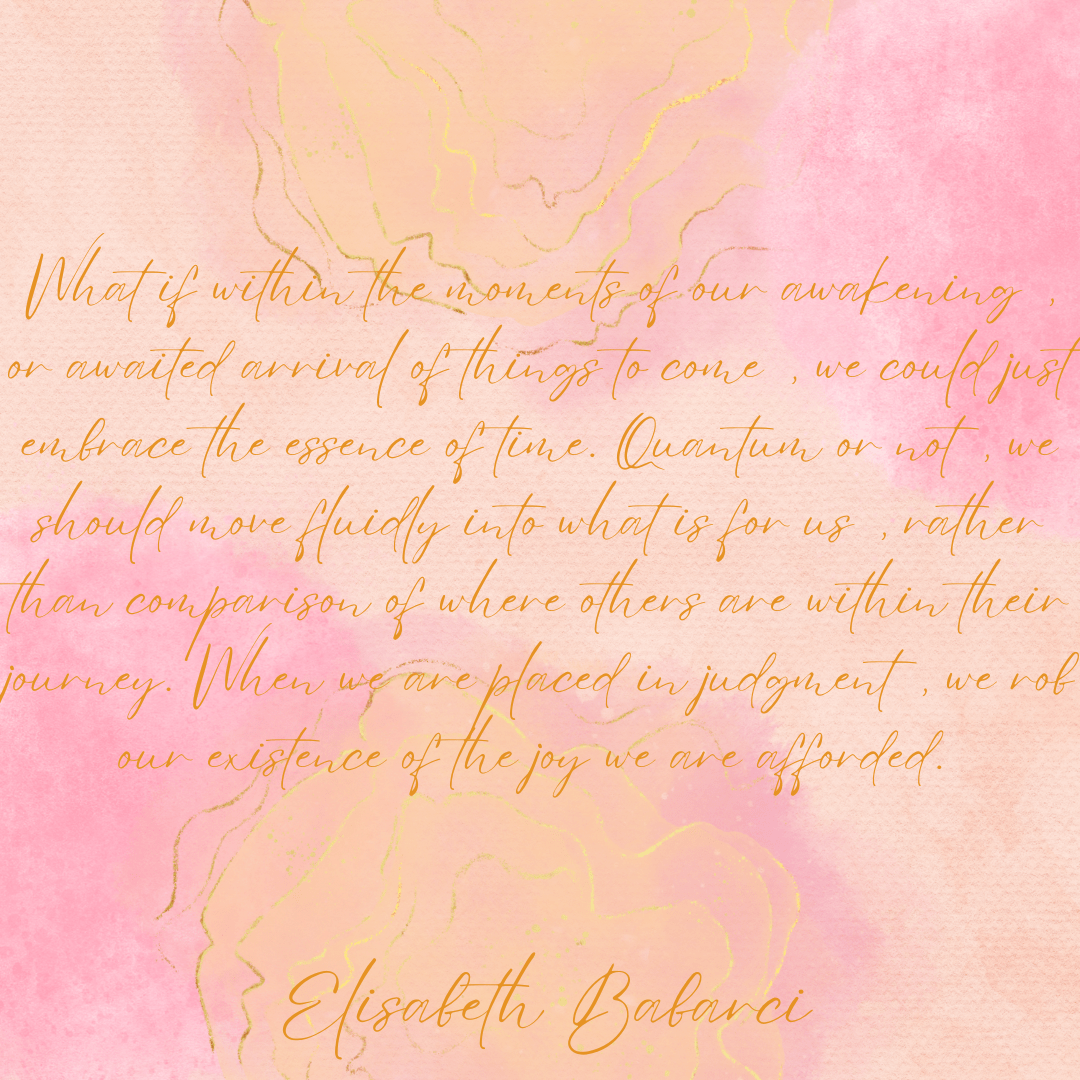 What if within the moments of our awakening ,
or awaited arrival of things to come , we could just
embrace the essence of time. Quantum or not , we
should move fluidly into what is for us , rather
than comparison of where others are within their
journey. When we are placed in judgment , we rob
our existence of the joy we are afforded.
Elisabeth Babarci